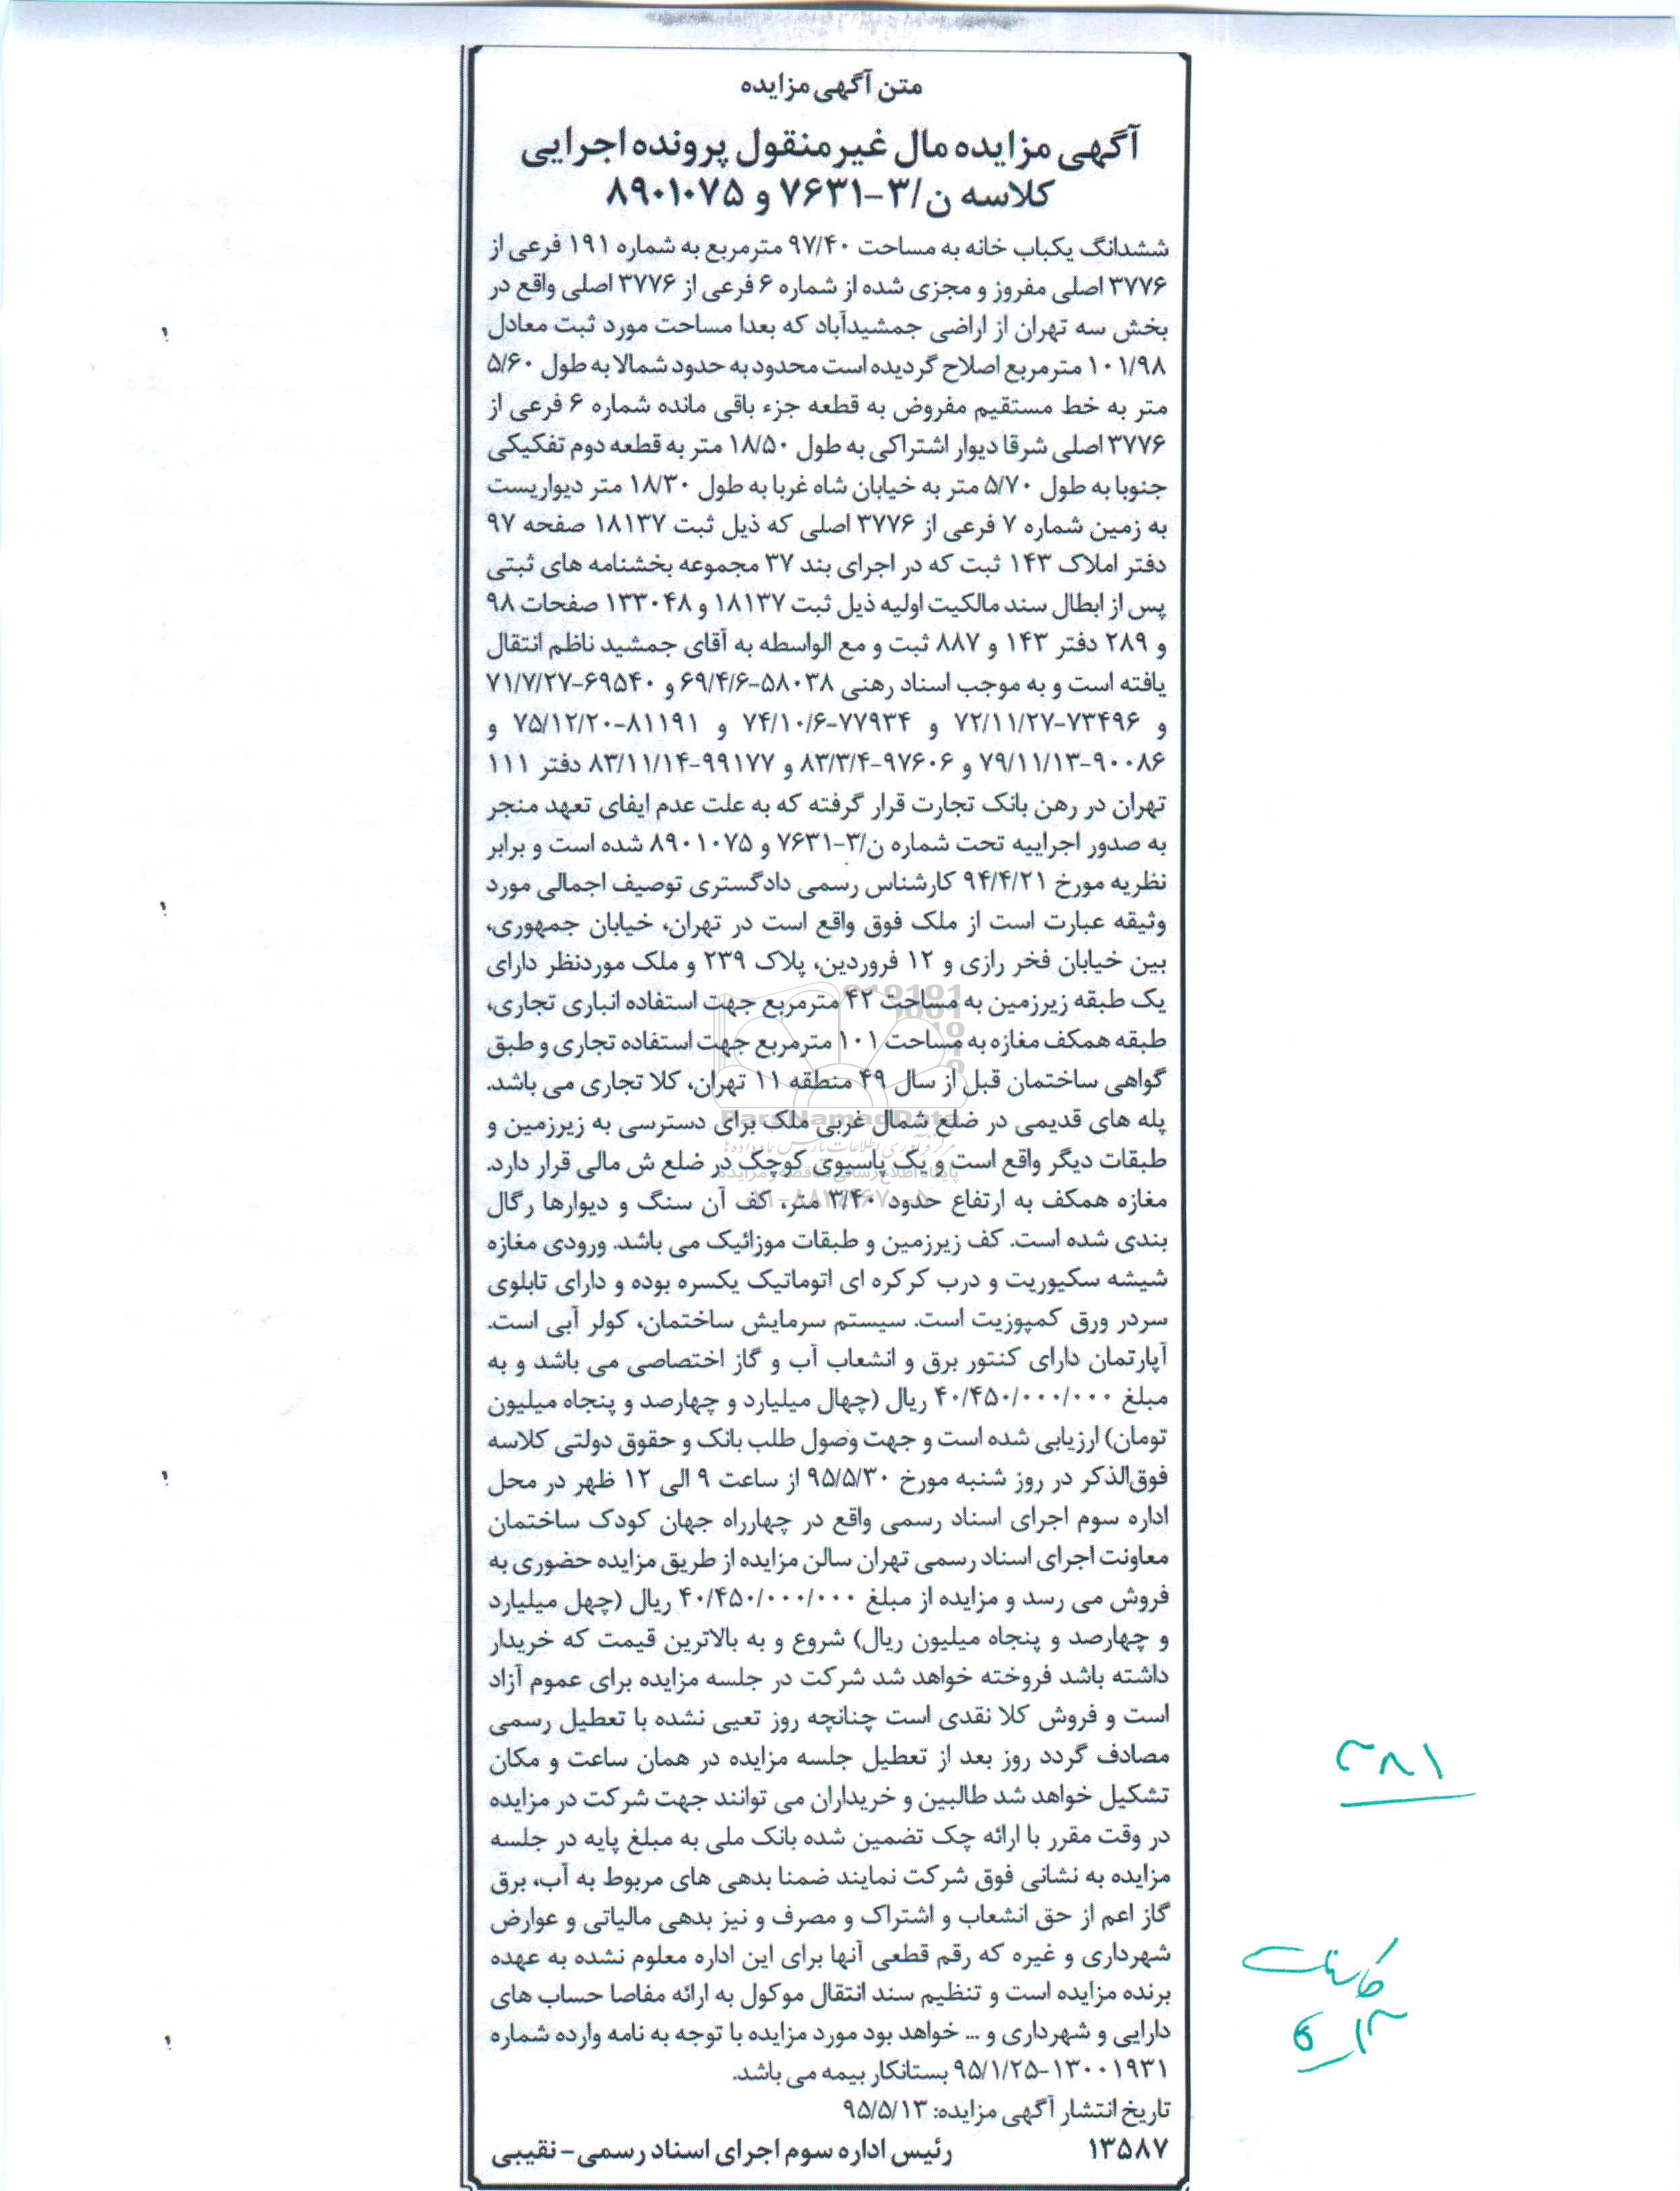 متن آگهی مزایده
آگهی مزایده مال غیرمنقول پرونده اجرایی
کلاسه ن/۳-۷۶۳۱ و ۸۹۰۱۰۷۵
ششدانگ یکباب خانه به مساحت ۹۷/۴۰ مترمربع به شماره ۱۹۱ فرعی از
۳۷۷۶ اصلی مفروز و مجزی شده از شماره ۶ فرعی از ۳۷۷۶ اصلی واقع در
بخش سه تهران از اراضی جمشیدآباد که بعدا مساحت مورد ثبت معادل
۱۰۱/۹۸ مترمربع اصلاح گردیده است محدود به حدود شمالا به طول ۵/۶۰
متر به خط مستقیم مفروض به قطعه جزء باقی مانده شماره ۶ فرعی از
۳۷۷۶ اصلی شرقا دیوار اشتراکی به طول ۱۸/۵۰ متر به قطعه دوم تفکیکی
جنوبا به طول ۵/۷۰ متر به خیابان شاه غربا به طول ۱۸/۳۰ متر دیواریست
به زمین شماره ۷ فرعی از ۳۷۷۶ اصلی که ذیل ثبت ۱۸۱۳۷ صفحه ۹۷
دفتر املاک ۱۴۳ ثبت که در اجرای بند ۳۷ مجموعه بخشنامه های ثبتی
پس از ابطال سند مالکیت اولیه ذیل ثبت ۱۸۱۳۷ و ۱۳۳۰۴۸ صفحات ۹۸
و ۲۸۹ دفتر ۱۴۳ و ۸۸۷ ثبت و مع الواسطه به آقای جمشید ناظم انتقال
یافته است و به موجب اسناد رهنی ۵۸۰۳۸-۶۹/۴/۶ و ۶۹۵۴۰-۷۱/۷/۲۷
و ۷۳۴۹۶-۷۲/۱۱/۲۷ و ۷۷۹۳۴-۷۴/۱۰/۶ و ۸۱۱۹۱-۷۵/۱۲/۲۰ و
۹۰۰۸۶-۷۹/۱۱/۱۳ و ۹۷۶۰۶-۸۳/۳/۴ و ۹۹۱۷۷-۸۳/۱۱/۱۴ دفتر ۱۱۱
تهران در رهن بانک تجارت قرار گرفته که به علت عدم ایفای تعهد منجر
به صدور اجراییه تحت شماره ن/۳-۷۶۳۱ و ۸۹۰۱۰۷۵ شده است و برابر
نظریه مورخ ۹۴/۴/۲۱ کارشناس رسمی دادگستری توصیف اجمالی مورد
وثیقه عبارت است از ملک فوق واقع است در تهران، خیابان جمهوری،
بین خیابان فخر رازی و ۱۲ فروردین، پلاک ۲۳۹ و ملک موردنظر دارای
یک طبقه زیرزمین به مساحت ۴۲ مترمربع جهت استفاده انباری تجاری،
طبقه همکف مغازه به مساحت ۱۰۱ مترمربع جهت استفاده تجاری و طبق
گواهی ساختمان قبل از سال ۴۹ منطقه ۱۱ تهران، کلا تجاری می باشد.
پله های قدیمی در ضلع شمال غربی ملک برای دسترسی به زیرزمین و
طبقات دیگر واقع است و یک پاسیوی کوچک در ضلع ش مالی قرار دارد.
مغازه همکف به ارتفاع حدود ۳/۴۰ متر، کف آن سنگ و دیوارها رگال
بندی شده است. کف زیرزمین و طبقات موزائیک می باشد. ورودی مغازه
شیشه سکیوریت و درب کرکره ای اتوماتیک یکسره بوده و دارای تابلوی
سردر ورق کمپوزیت است. سیستم سرمایش ساختمان، کولر آبی است.
آپارتمان دارای کنتور برق و انشعاب آب و گاز اختصاصی می باشد و به
مبلغ ۴۰/۴۵۰/۰۰۰/۰۰۰ ریال (چهال میلیارد و چهارصد و پنجاه میلیون
تومان) ارزیابی شده است و جهت وصول طلب بانک و حقوق دولتی کلاسه
فوق‌الذکر در روز شنبه مورخ ۹۵/۵/۳۰ از ساعت ۹ الی ۱۲ ظهر در محل
اداره سوم اجرای اسناد رسمی واقع در چهارراه جهان کودک ساختمان
معاونت اجرای اسناد رسمی تهران سالن مزایده از طریق مزایده حضوری به
فروش می رسد و مزایده از مبلغ ۴۰/۴۵۰/۰۰۰/۰۰۰ ریال (چهل میلیارد
و چهارصد و پنجاه میلیون ریال) شروع و به بالاترین قیمت که خریدار
داشته باشد فروخته خواهد شد شرکت در جلسه مزایده برای عموم آزاد
است و فروش کلا نقدی است چنانچه روز تعیی نشده با تعطیل رسمی
مصادف گردد روز بعد از تعطیل جلسه مزایده در همان ساعت و مکان
تشکیل خواهد شد طالبین و خریداران می توانند جهت شرکت در مزایده
در وقت مقرر با ارائه چک تضمین شده بانک ملی به مبلغ پایه در جلسه
مزایده به نشانی فوق شرکت نمایند ضمنا بدهی های مربوط به آب، برق
گاز اعم از حق انشعاب و اشتراک و مصرف و نیز بدهی مالیاتی و عوارض
شهرداری و غیره که رقم قطعی آنها برای این اداره معلوم نشده به عهده
برنده مزایده است و تنظیم سند انتقال موکول به ارائه مفاصا حساب های
دارایی و شهرداری و ... خواهد بود مورد مزایده با توجه به نامه وارده شماره
۱۳۰۰۱۹۳۱-۹۵/۱/۲۵ بستانکار بیمه می باشد.
تاریخ انتشار آگهی مزایده: ۹۵/۵/۱۳
۱۳۵۸۷ رئیس اداره سوم اجرای اسناد رسمی-نقیبی
ParsNamadData